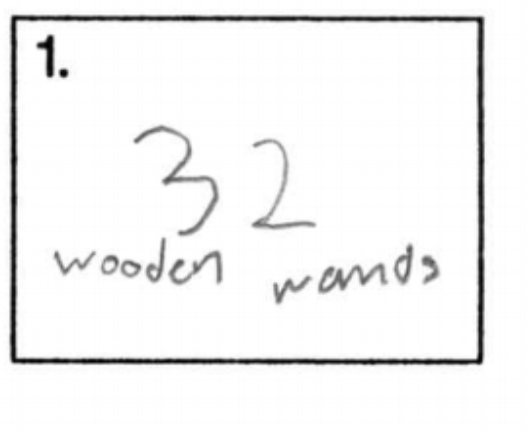 1.
32
wooden wands